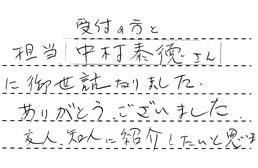 受付の方と
担当 中村泰徳さん
に御世話なりました.
ありがとうございました
友人、知人に紹介したいと思いま